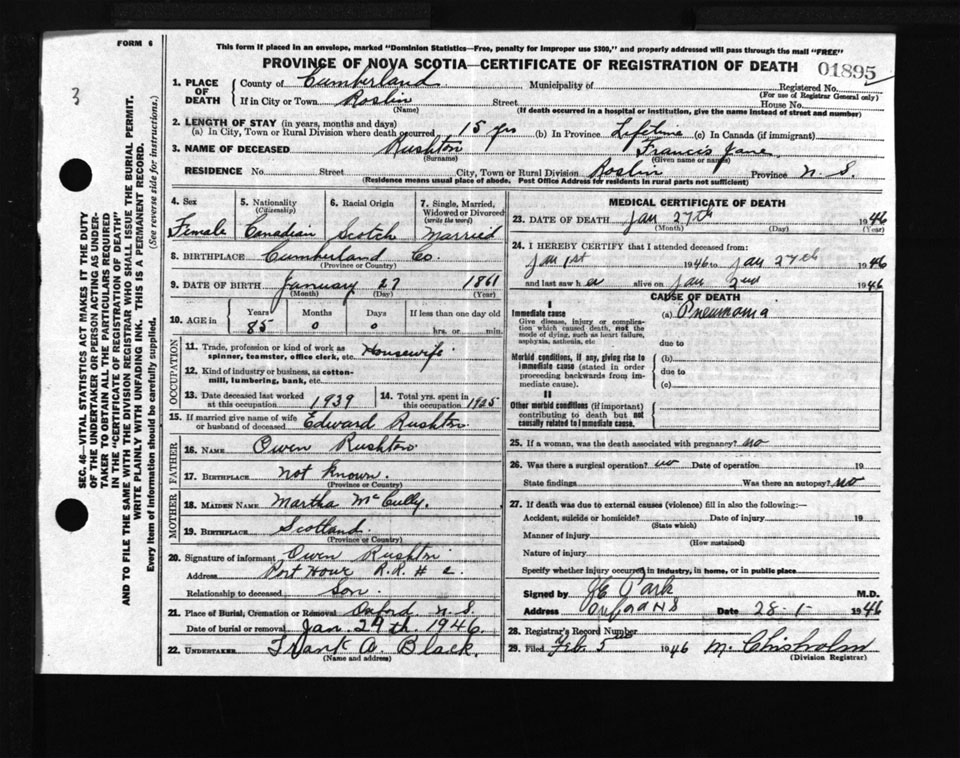 FORM 6
This form if placed in an envelope, marked "Dominion Statistics—Free, penalty for improper use $300," and properly addressed will pass through the mail "FREE"
PROVINCE OF NOVA SCOTIA—CERTIFICATE OF REGISTRATION OF DEATH
01895
3
SEC. 46—VITAL STATISTICS ACT MAKES IT THE DUTY
OF THE UNDERTAKER OR PERSON ACTING AS UNDER-
TAKER TO OBTAIN ALL THE PARTICULARS REQUIRED
IN THE "CERTIFICATE OF REGISTRATION OF DEATH"
AND TO FILE THE SAME WITH THE DIVISION REGISTRAR WHO SHALL ISSUE THE BURIAL PERMIT.
WRITE PLAINLY WITH UNFADING INK. THIS IS A PERMANENT RECORD.
Every item of information should be carefully supplied. (See reverse side for instructions.)
1. PLACE OF DEATH County of Cumberland Municipality of Registered No.
(For use of Registrar General only)
If in City or Town Roslin Street House No.
(Name) (If death occurred in a hospital or institution, give the name instead of street and number)
2. LENGTH OF STAY (in years, months and days)
(a) In City, Town or Rural Division where death occurred 15 yrs (b) In Province Lifetime (c) In Canada (if immigrant)
3. NAME OF DECEASED Rushton Francis Jane
(Surname) (Given name or names)
RESIDENCE No. Street City, Town or Rural Division Roslin Province N. S.
(Residence means usual place of abode. Post Office Address for residents in rural parts not sufficient)
4. Sex 5. Nationality (Citizenship) 6. Racial Origin 7. Single, Married, Widowed or Divorced (write the word)
Female Canadian Scotch Married
8. BIRTHPLACE Cumberland Co.
(Province or Country)
9. DATE OF BIRTH January 27 1861
(Month) (Day) (Year)
10. AGE in Years Months Days If less than one day old
85 0 0 hrs. or min.
OCCUPATION
11. Trade, profession or kind of work as spinner, teamster, office clerk, etc. Housewife
12. Kind of industry or business, as cotton-mill, lumbering, bank, etc.
13. Date deceased last worked at this occupation 1939 14. Total yrs. spent in this occupation 1925
15. If married give name of wife or husband of deceased Edward Rushton
FATHER
16. NAME Owen Rushton
17. BIRTHPLACE not known.
(Province or Country)
MOTHER
18. MAIDEN NAME Martha McCully.
19. BIRTHPLACE Scotland.
(Province or Country)
20. Signature of informant Owen Rushton
Address Port Howe R.R. #
Relationship to deceased Son.
21. Place of Burial, Cremation or Removal Oxford N.S.
Date of burial or removal Jan. 29th. 1946.
22. UNDERTAKER Frank A. Black.
(Name and address)
MEDICAL CERTIFICATE OF DEATH
23. DATE OF DEATH Jan 27th 1946
(Month) (Day) (Year)
24. I HEREBY CERTIFY that I attended deceased from:
Jan 1st 1946 to Jan 27th 1946
and last saw her alive on Jan 2nd 1946
CAUSE OF DEATH
I
Immediate cause (a) Pneumonia
Give disease, injury or complication which caused death, not the mode of dying, such as heart failure, asphyxia, asthenia, etc
due to
Morbid conditions, if any, giving rise to immediate cause (stated in order proceeding backwards from immediate cause). (b)
due to
(c)
II
Other morbid conditions (if important) contributing to death but not causally related to immediate cause.
25. If a woman, was the death associated with pregnancy? no
26. Was there a surgical operation? no Date of operation 19
State findings Was there an autopsy? no
27. If death was due to external causes (violence) fill in also the following:—
Accident, suicide or homicide? Date of injury 19
(State which)
Manner of injury
(How sustained)
Nature of injury
Specify whether injury occurred in industry, in home, or in public place
Signed by Park M.D.
Address Oxford NS Date 28-1- 1946
28. Registrar's Record Number
29. Filed Feb. 5 1946 M. Chisholm
(Division Registrar)